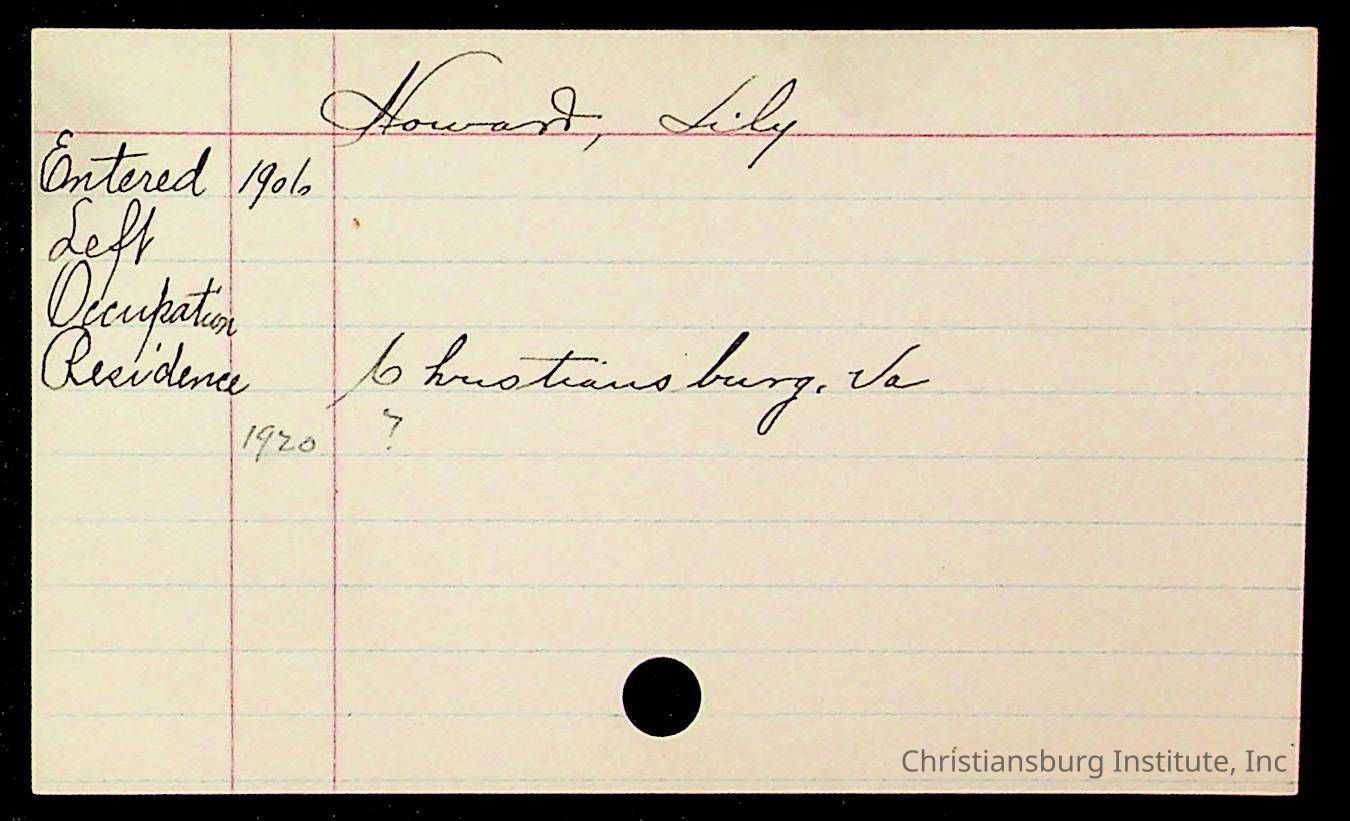 Howard, Lily
Entered 1906
Left
Occupation
Residence Christiansburg, Va
1920 ?
Christiansburg Institute, Inc